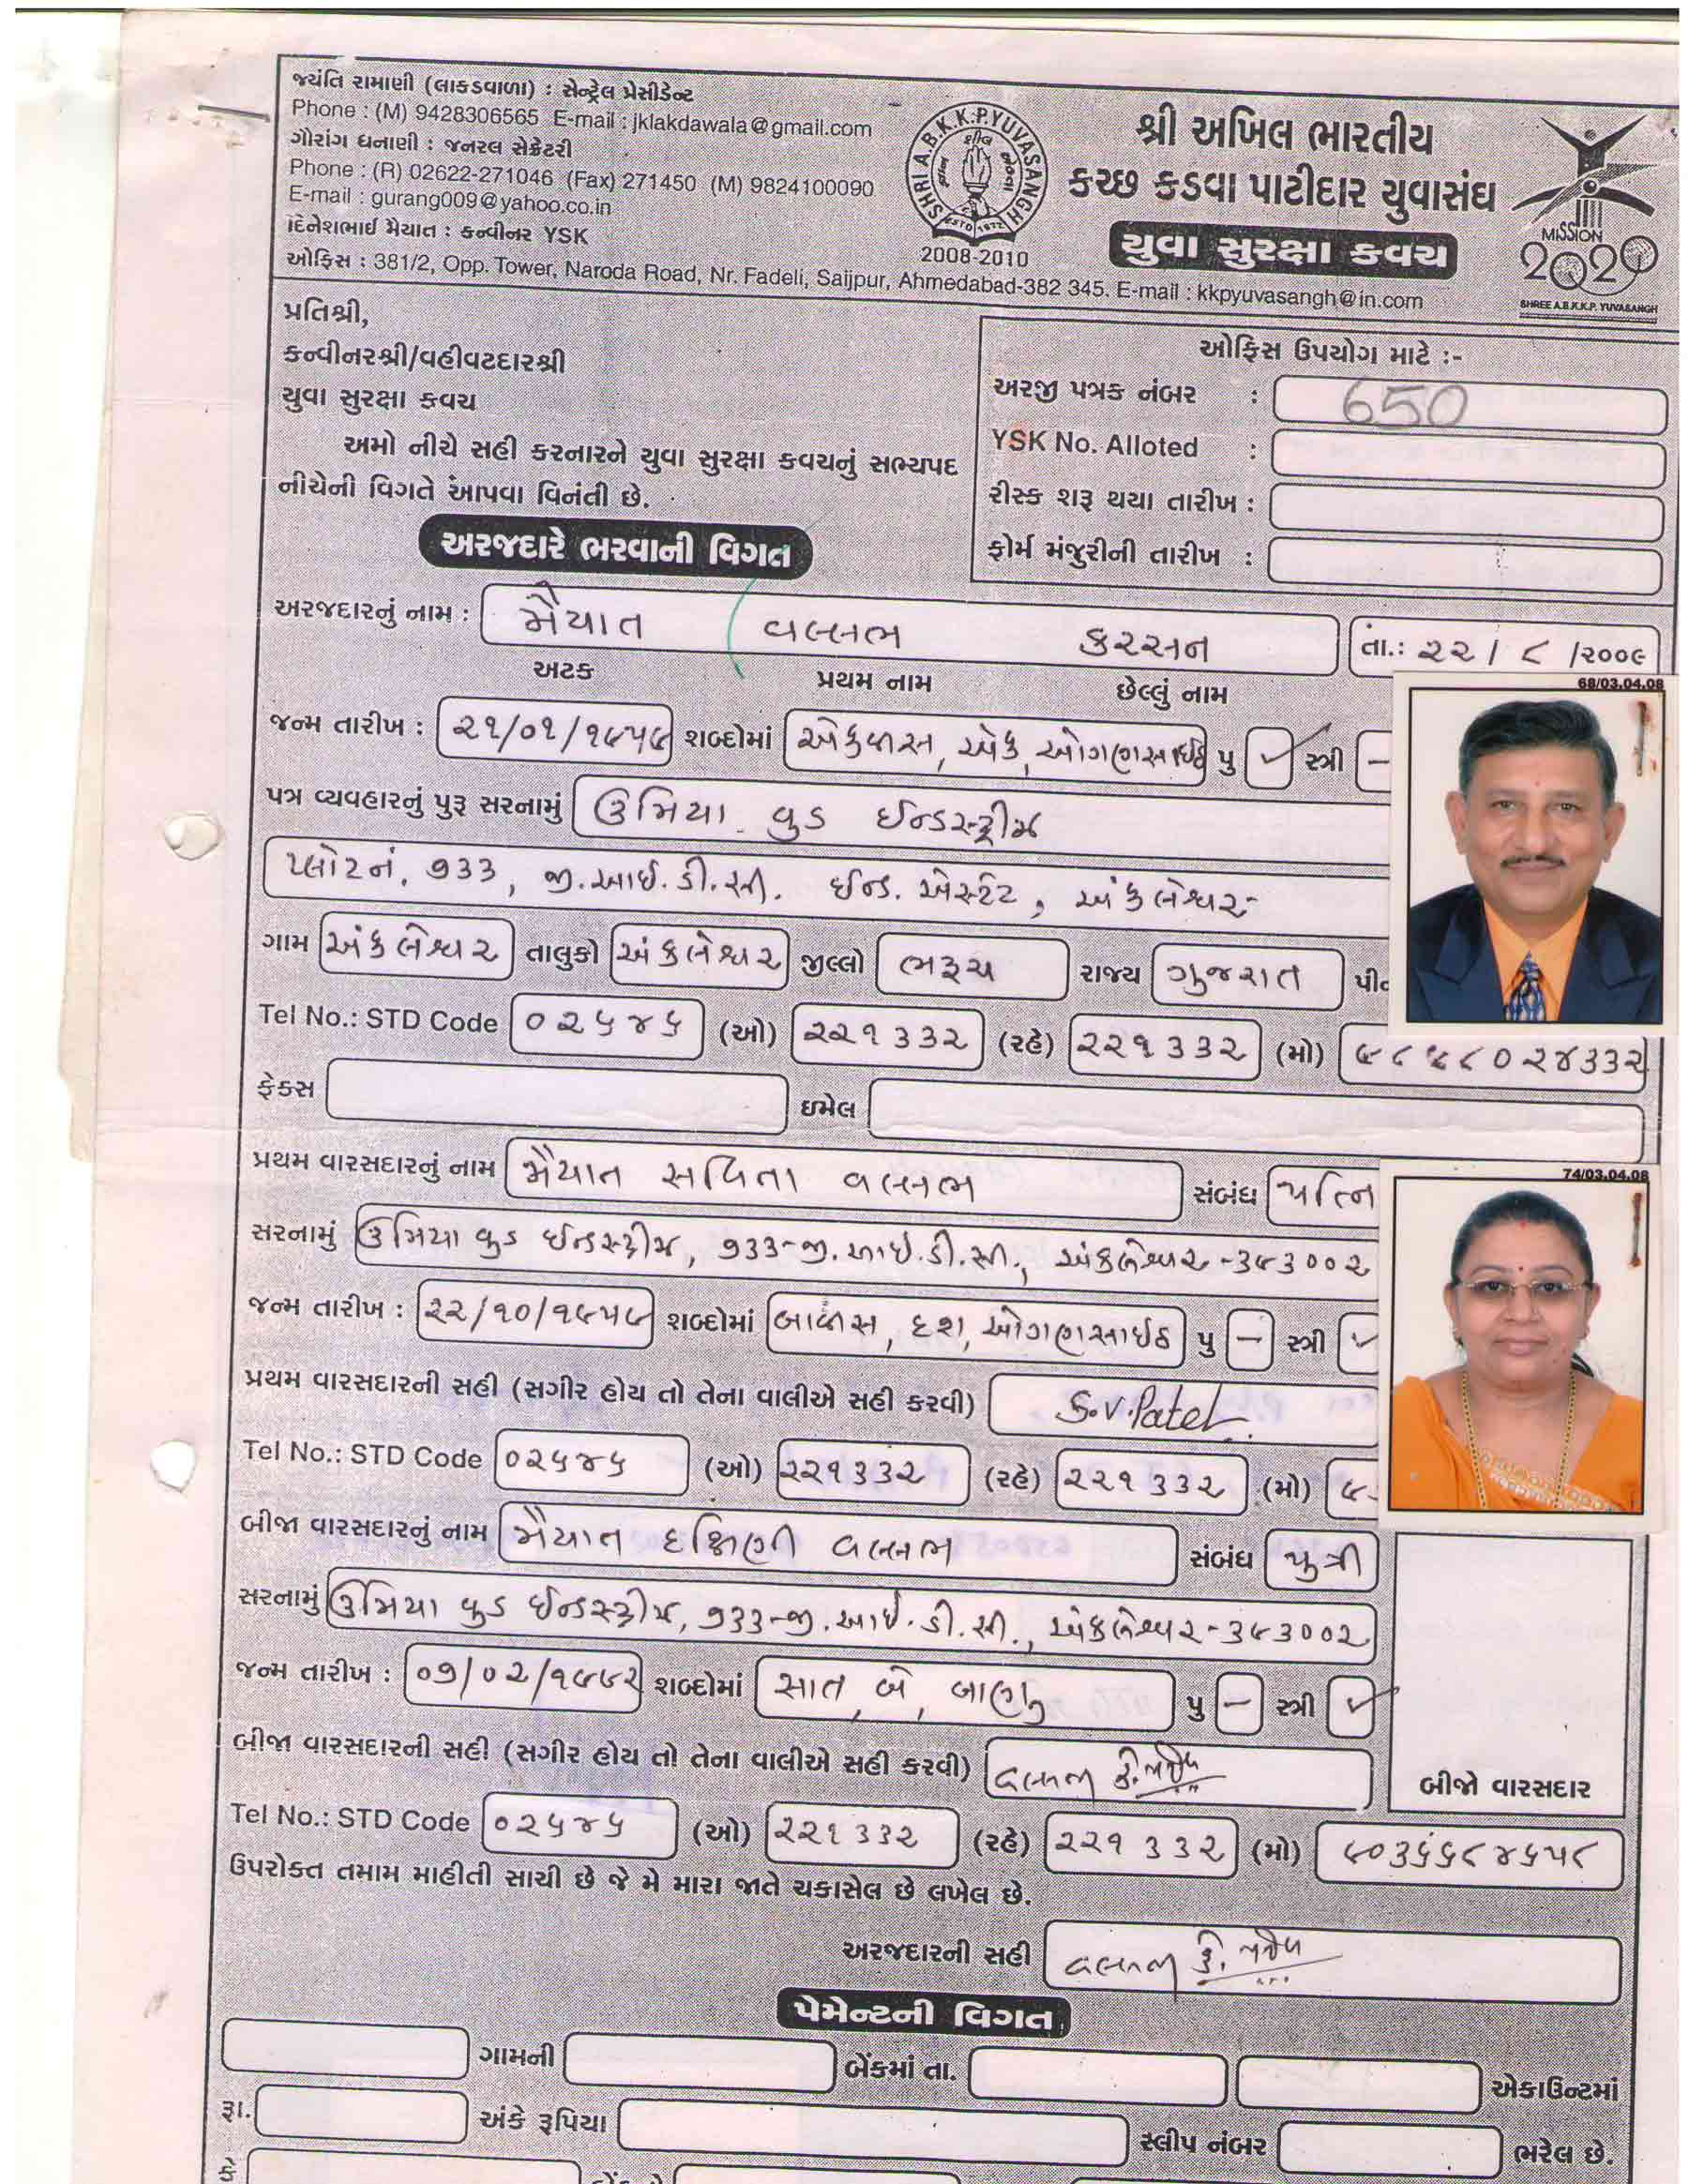 જયંતિ રામાણી (લાકડાવાળા) : સેન્ટ્રેલ પ્રેસીડેન્ટ
Phone : (M) 9428306565 E-mail : jklakdawala@gmail.com
ગૌરાંગ ધનાણી : જનરલ સેક્રેટરી
Phone : (R) 02622-271046 (Fax) 271450 (M) 9824100090
E-mail : gurang009@yahoo.co.in
દિનેશભાઈ મૈયાત : કન્વીનર YSK
ઓફિસ : 381/2, Opp. Tower, Naroda Road, Nr. Fadeli, Saijpur, Ahmedabad-382 345. E-mail : kkpyuvasangh@in.com
SHRI A.B.K.K.P. YUVASANGH
ESTD 1972
2008-2010
શ્રી અખિલ ભારતીય
કચ્છ કડવા પાટીદાર યુવાસંઘ
યુવા સુરક્ષા કવચ
MISSION
2020
SHREE A.B.K.K.P. YUVASANGH
પ્રતિશ્રી,
કન્વીનરશ્રી/વહીવટદારશ્રી
યુવા સુરક્ષા કવચ
અમો નીચે સહી કરનારને યુવા સુરક્ષા કવચનું સભ્યપદ
નીચેની વિગતે આપવા વિનંતી છે.
ઓફિસ ઉપયોગ માટે :-
અરજી પત્રક નંબર : 650
YSK No. Alloted :
રીસ્ક શરૂ થયા તારીખ :
ફોર્મ મંજુરીની તારીખ :
અરજદારે ભરવાની વિગત
અરજદારનું નામ : મૈયાત વલ્લભ કરસન તા.: ૨૨ / ૮ /૨૦૦૯
અટક પ્રથમ નામ છેલ્લું નામ
68/03.04.08
જન્મ તારીખ : ૨૧/૦૧/૧૯૫૯ શબ્દોમાં એકવીસ, એક, ઓગણસાઈઠ પુ ✓ સ્ત્રી –
પત્ર વ્યવહારનું પુરૂ સરનામું ઉમિયા વુડ ઈન્ડસ્ટ્રીઝ
પ્લોટનં. ૭૩૩, જી.આઈ.ડી.સી. ઈન્ડ. એસ્ટેટ, અંકલેશ્વર-
ગામ અંકલેશ્વર તાલુકો અંકલેશ્વર જીલ્લો ભરૂચ રાજ્ય ગુજરાત
Tel No.: STD Code ૦૨૬૪૬ (ઓ) ૨૨૧૩૩૨ (રહે) ૨૨૧૩૩૨ (મો) ૯૮૯૮૦૨૪૩૩૨
ફેક્સ ઇમેલ
પ્રથમ વારસદારનું નામ મૈયાત સવિતા વલ્લભ સંબંધ પત્નિ
74/03.04.08
સરનામું ઉમિયા વુડ ઈન્ડસ્ટ્રીઝ, ૭૩૩-જી.આઈ.ડી.સી., અંકલેશ્વર -૩૯૩૦૦૨
જન્મ તારીખ : ૨૨/૧૦/૧૯૫૯ શબ્દોમાં બાવીસ, દશ, ઓગણસાઈઠ પુ – સ્ત્રી ✓
પ્રથમ વારસદારની સહી (સગીર હોય તો તેના વાલીએ સહી કરવી) S.V.Patel
Tel No.: STD Code ૦૨૬૪૬ (ઓ) ૨૨૧૩૩૨ (રહે) ૨૨૧૩૩૨ (મો) ૯
બીજા વારસદારનું નામ મૈયાત દક્ષિણી વલ્લભ સંબંધ પુત્રી
સરનામું ઉમિયા વુડ ઈન્ડસ્ટ્રીઝ, ૭૩૩-જી.આઈ.ડી.સી., અંકલેશ્વર-૩૯૩૦૦૨
જન્મ તારીખ : ૦૭/૦૨/૧૯૯૨ શબ્દોમાં સાત, બે, બાણુ પુ – સ્ત્રી ✓
બીજા વારસદારની સહી (સગીર હોય તો તેના વાલીએ સહી કરવી) વલ્લભ કે. પટેલ
બીજો વારસદાર
Tel No.: STD Code ૦૨૬૪૬ (ઓ) ૨૨૧૩૩૨ (રહે) ૨૨૧૩૩૨ (મો) ૯૦૩૬૬૮૪૬૫૮
ઉપરોક્ત તમામ માહીતી સાચી છે જે મે મારા જાતે ચકાસેલ છે લખેલ છે.
અરજદારની સહી વલ્લભ કે. પટેલ
પેમેન્ટની વિગત
ગામની બેંકમાં તા. એકાઉન્ટમાં
રૂા. અંકે રૂપિયા સ્લીપ નંબર ભરેલ છે.